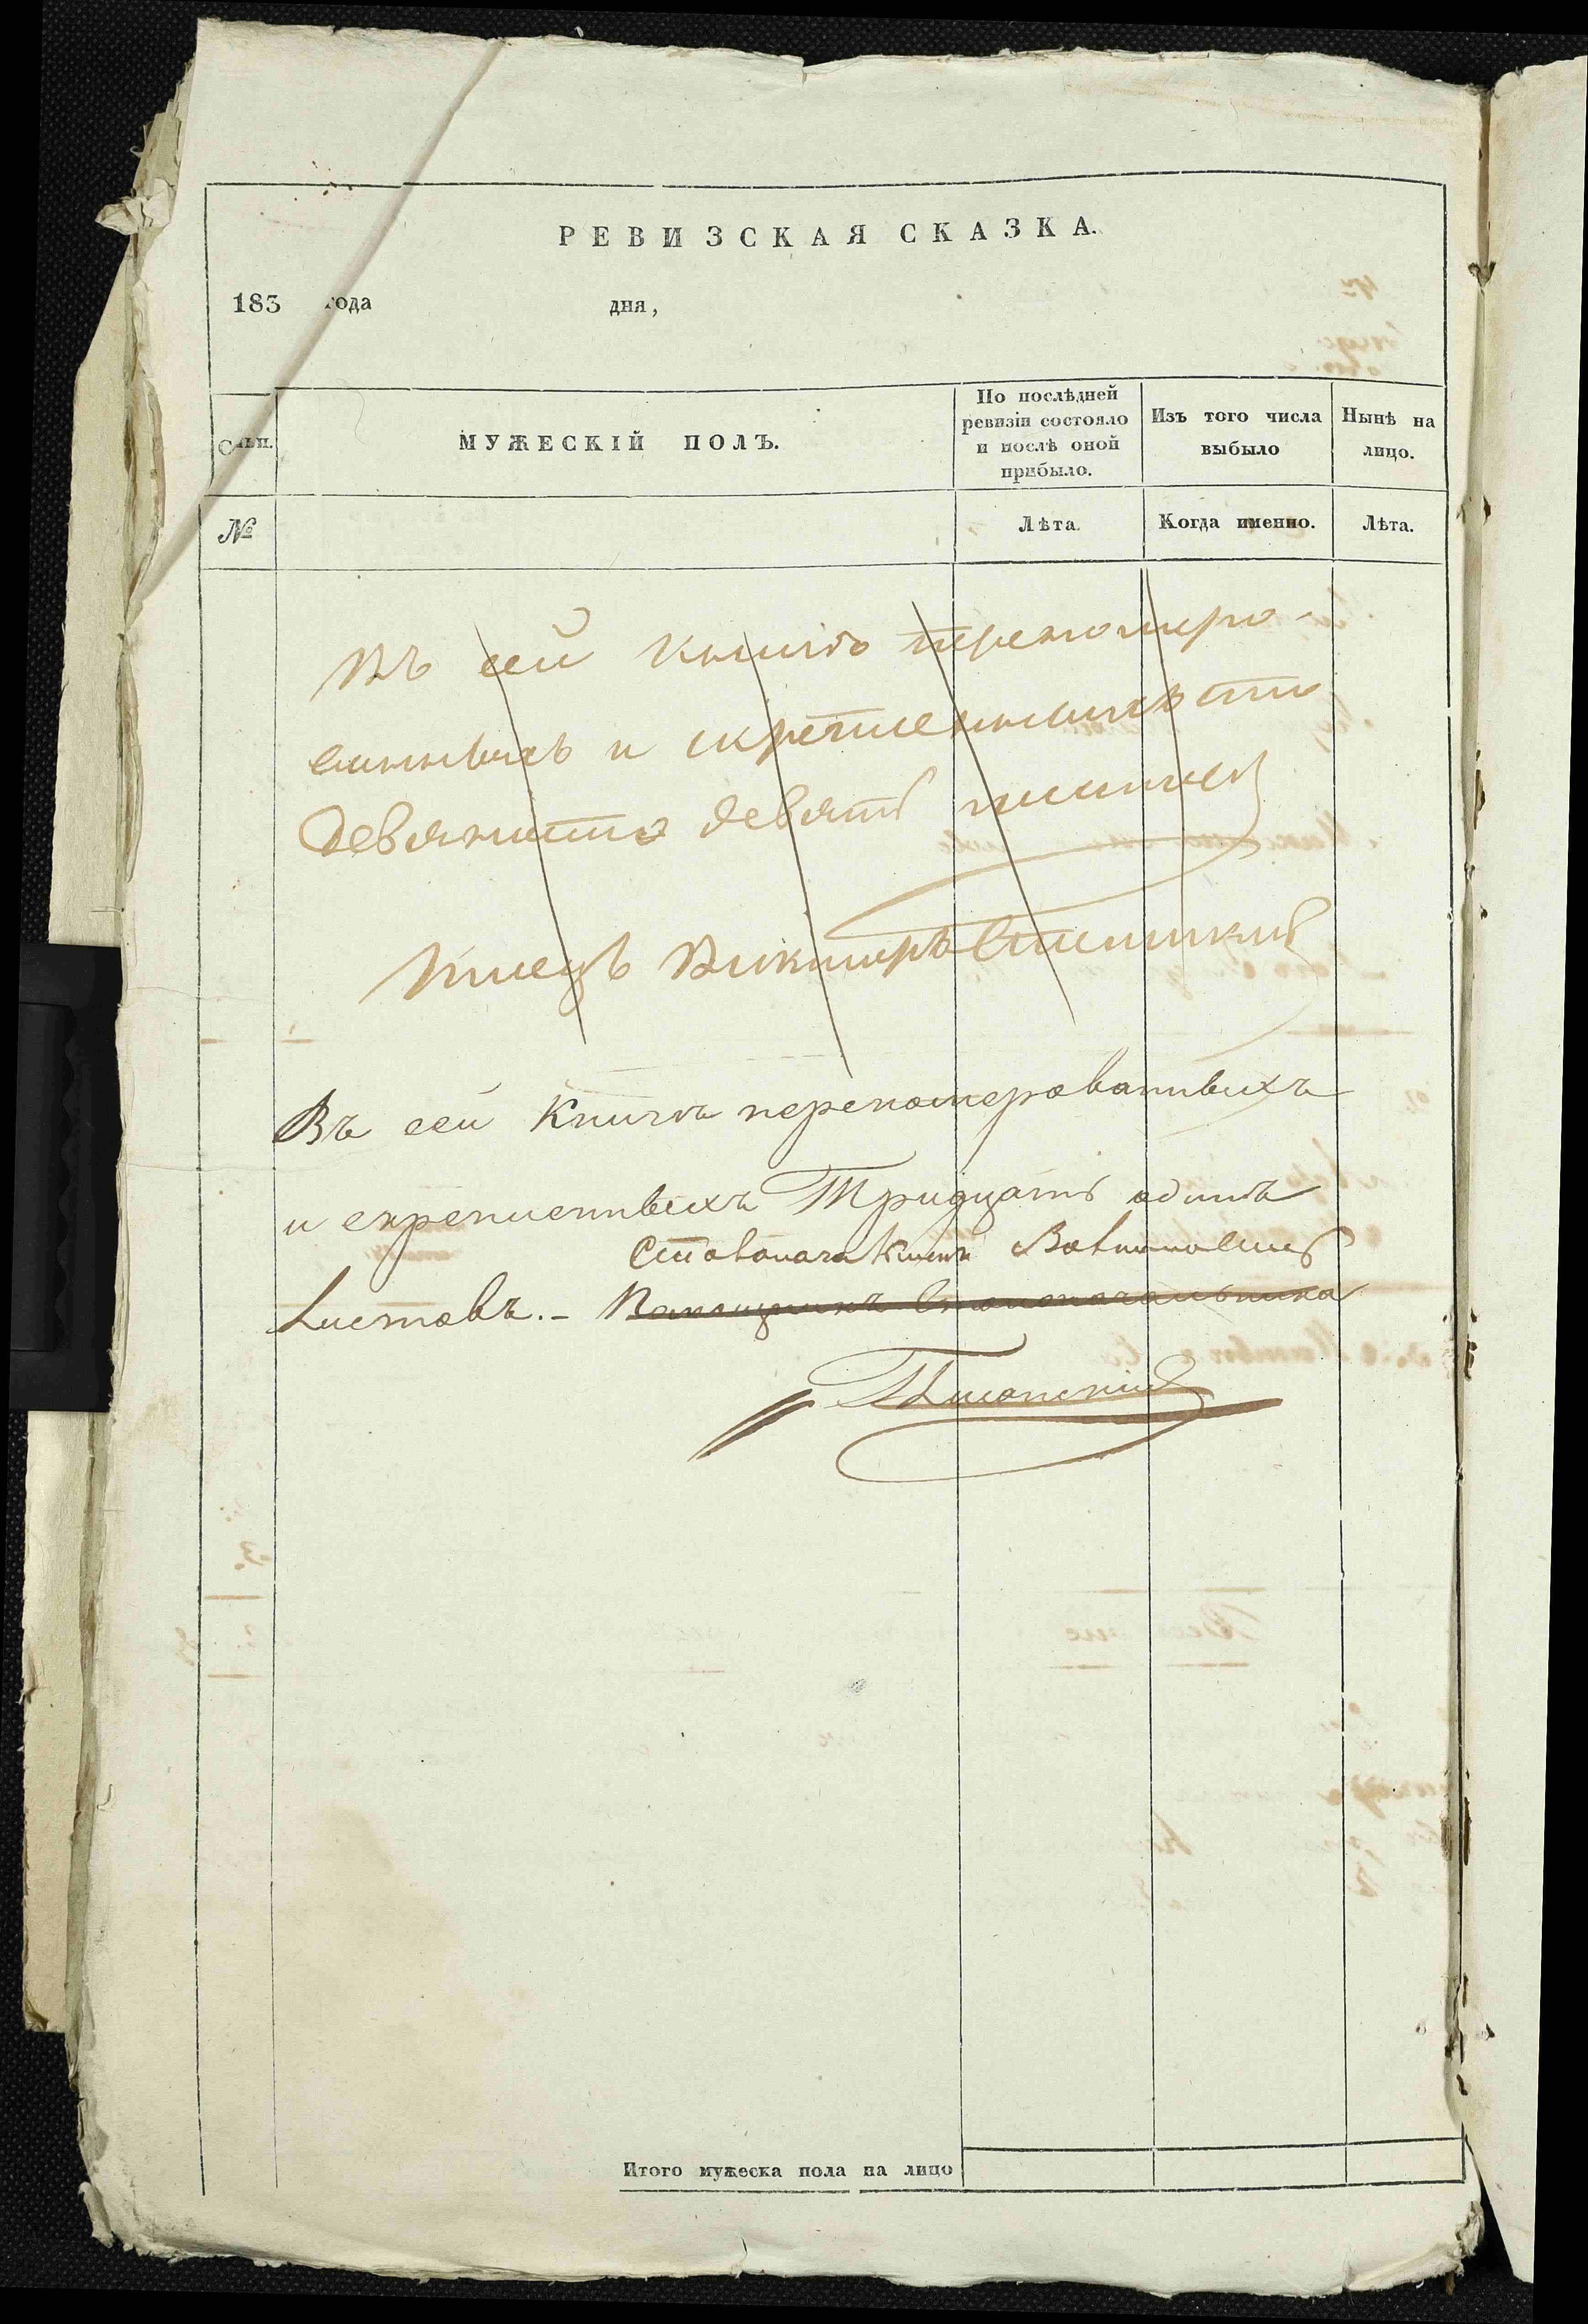 РЕВИЗСКАЯ СКАЗКА.
183 года дня,
МУЖЕСКІЙ ПОЛЪ.
По послѣдней
ревизіи состояло
и послѣ оной
прибыло.
Изъ того числа
выбыло
Нынѣ на
лицо.
№
Лѣта.
Когда именно.
Лѣта.
Въ сей книгѣ перенумеро-
ванныхъ и скрепленныхъ сто
девяносто девять листовъ
Писецъ Викторъ
Въ сей Книгѣ переномерованныхъ
и скрепленныхъ Тридцать одинъ
Листовъ.- Помощникъ Столоначальника
Итого мужеска пола на лицо